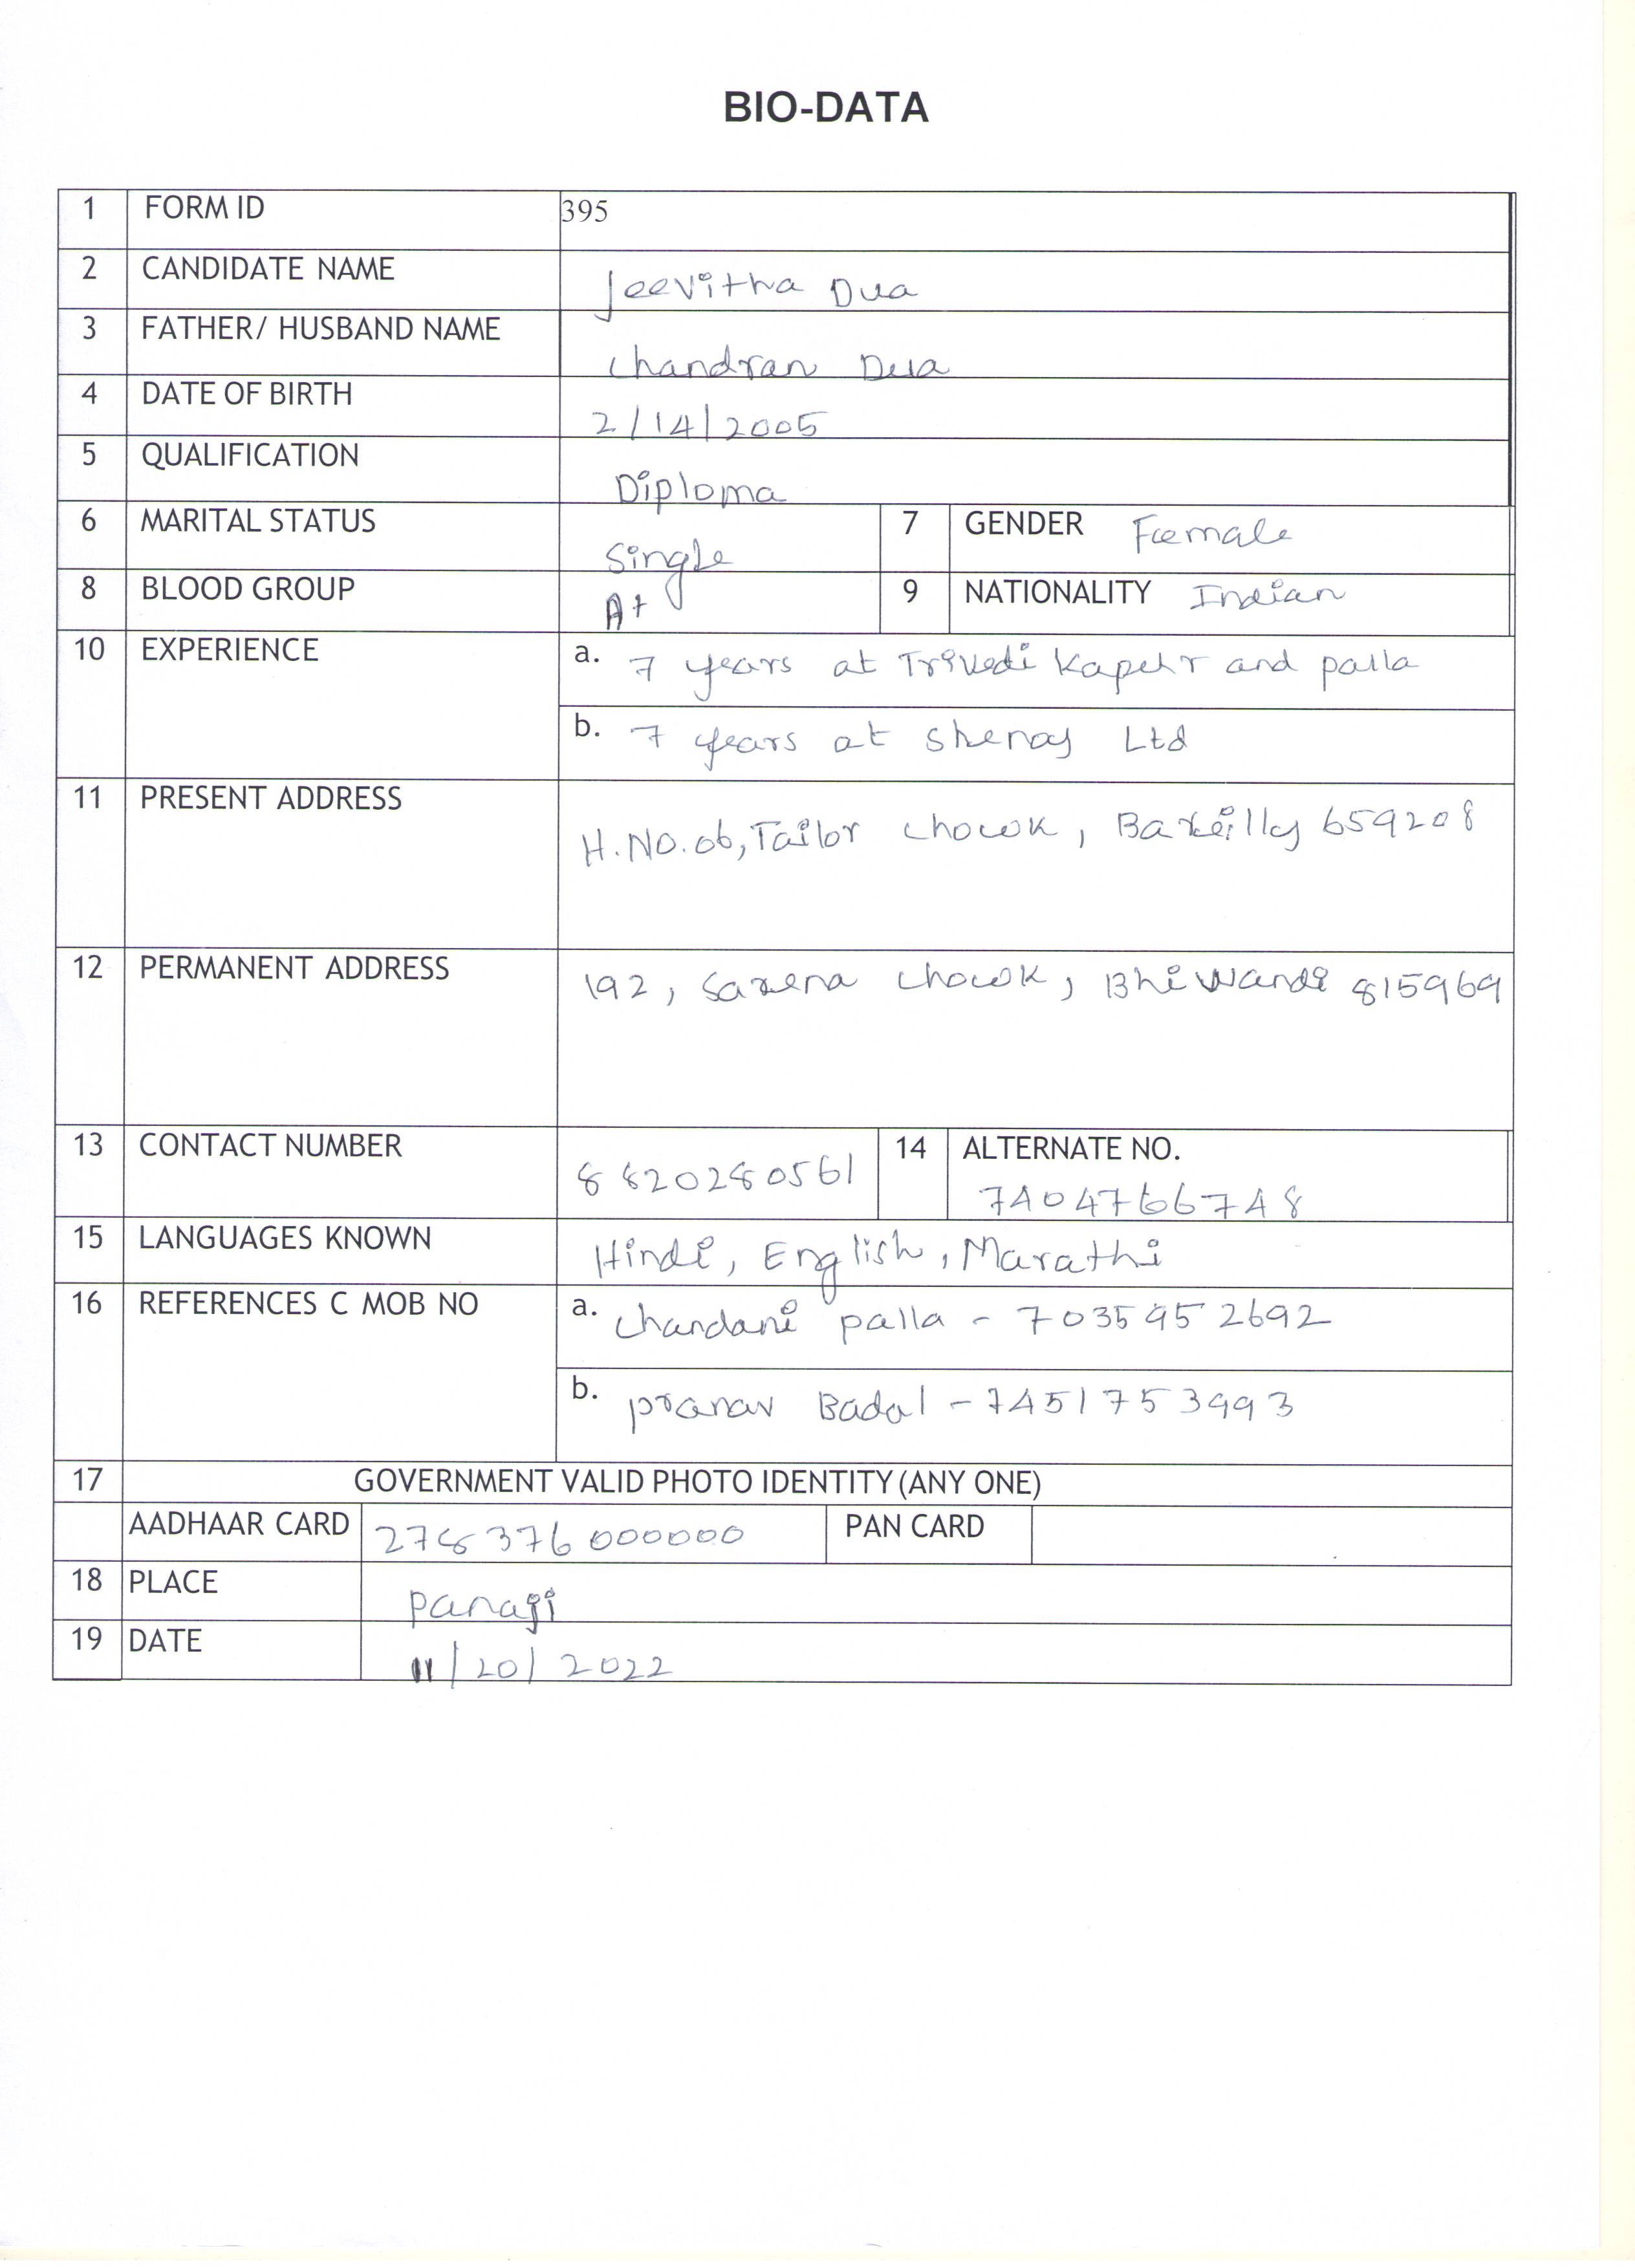 BIO-DATA
1 FORM ID 395
2 CANDIDATE NAME Jeevitha Dua
3 FATHER/ HUSBAND NAME Chandran Dua
4 DATE OF BIRTH 2/14/2005
5 QUALIFICATION Diploma
6 MARITAL STATUS Single 7 GENDER Female
8 BLOOD GROUP A+ 9 NATIONALITY Indian
10 EXPERIENCE a. 7 years at Trivedi Kapur and palla
b. 7 years at Shenoy Ltd
11 PRESENT ADDRESS H.NO.06, Tailor chowk, Bareilly 659208
12 PERMANENT ADDRESS 192, Saxena chowk, Bhiwandi 815969
13 CONTACT NUMBER 8820280561 14 ALTERNATE NO.
7404766748
15 LANGUAGES KNOWN Hindi, English, Marathi
16 REFERENCES C MOB NO a. Chandani palla - 7035952692
b. pranav Badal - 7451753993
17 GOVERNMENT VALID PHOTO IDENTITY (ANY ONE)
AADHAAR CARD 278376000000 PAN CARD
18 PLACE panaji
19 DATE 11/20/2022